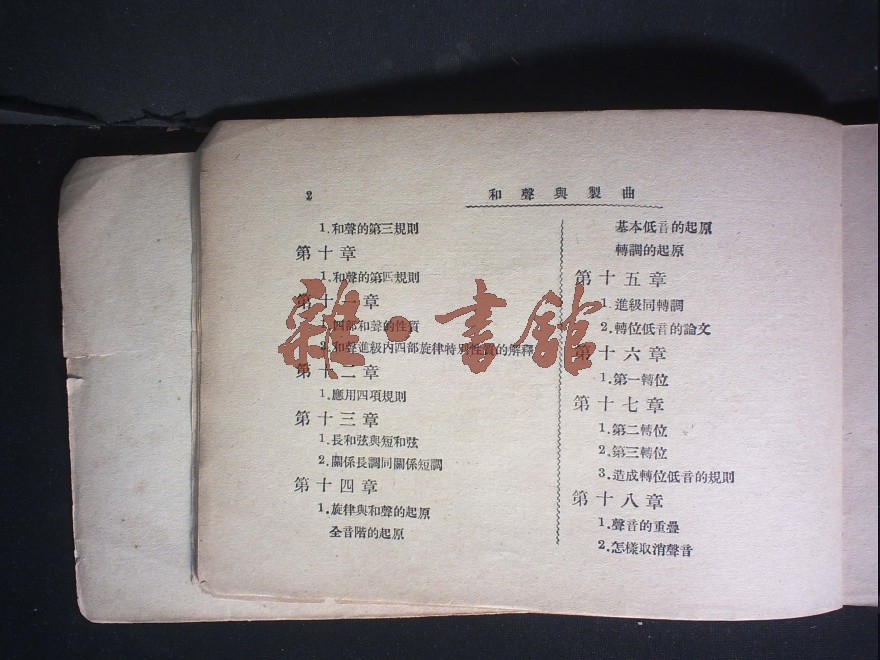 2
和聲與製曲
1.和聲的第三規則
第十章
1.和聲的第四規則
第十一章
1.四部和聲的性質
2.和聲進級內四部旋律特別性質的解釋
第十二章
1.應用四項規則
第十三章
1.長和弦與短和弦
2.關係長調同關係短調
第十四章
1.旋律與和聲的起原
全音階的起原
基本低音的起原
轉調的起原
第十五章
1.進級同轉調
2.轉位低音的論文
第十六章
1.第一轉位
第十七章
1.第二轉位
2.第三轉位
3.造成轉位低音的規則
第十八章
1.聲音的重疊
2.怎樣取消聲音
雜·書館